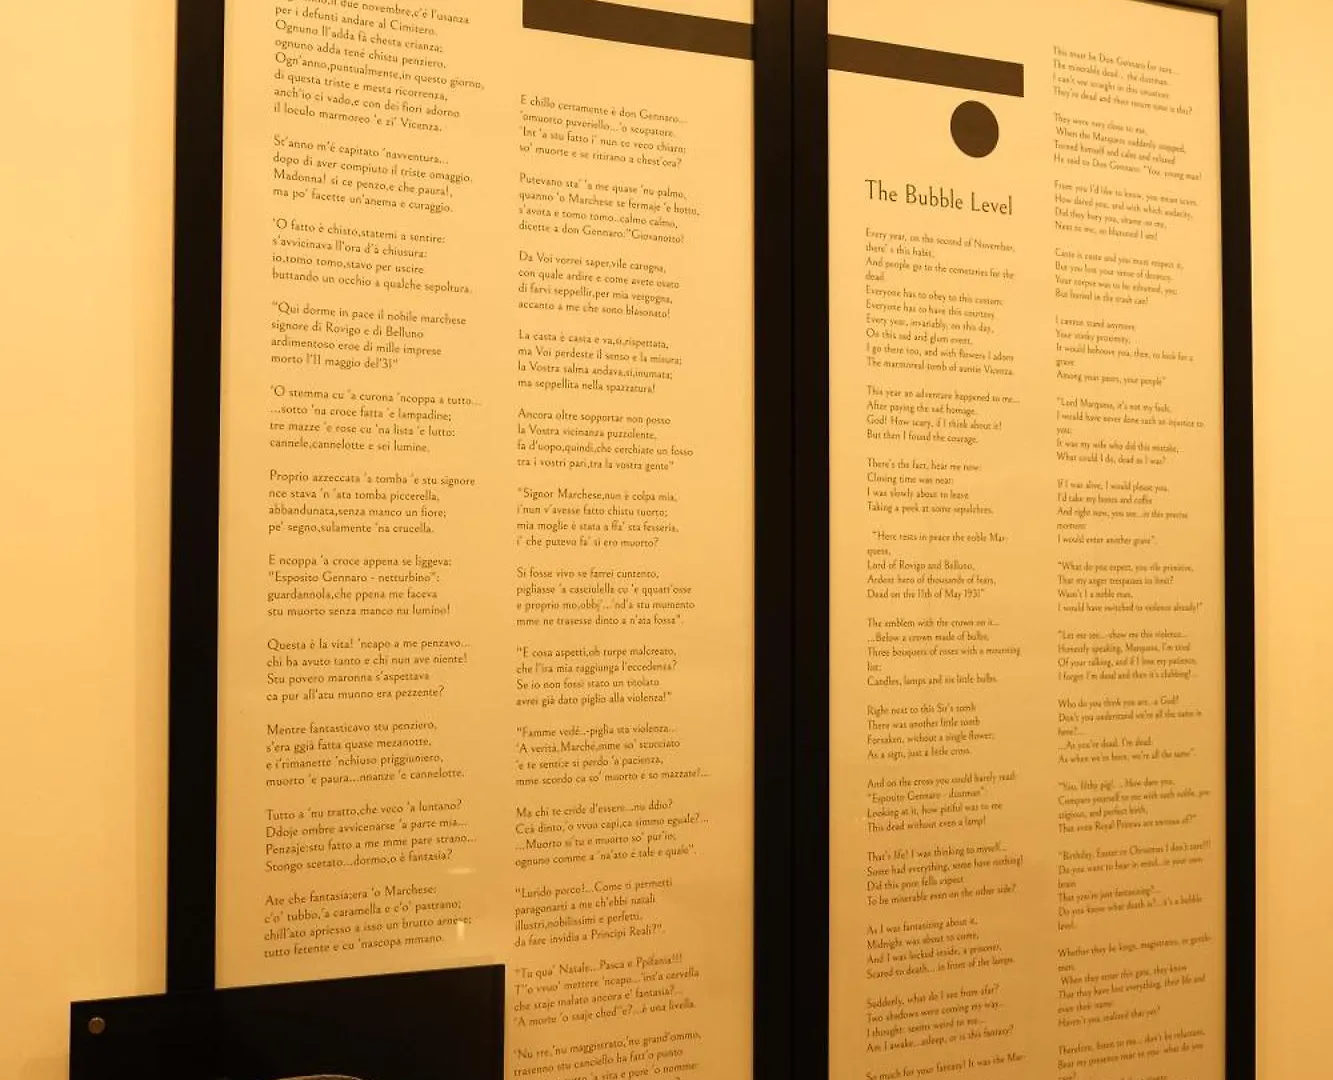 due novembre,c'é l'usanza
per i defunti andare al Cimitero.
Ognuno ll'adda fà chesta crianza;
ognuno adda tené chistu penziero.
Ogn'anno,puntualmente,in questo giorno,
di questa triste e mesta ricorrenza,
anch'io ci vado,e con dei fiori adorno
il loculo marmoreo 'e zi' Vicenza.
St'anno m'é capitato 'navventura...
dopo di aver compiuto il triste omaggio.
Madonna! si ce penzo,e che paura!,
ma po' facette un'anema e curaggio.
'O fatto è chisto,statemi a sentire:
s'avvicinava ll'ora d'à chiusura:
io,tomo tomo,stavo per uscire
buttando un occhio a qualche sepoltura.
"Qui dorme in pace il nobile marchese
signore di Rovigo e di Belluno
ardimentoso eroe di mille imprese
morto l'11 maggio del'31"
'O stemma cu 'a curona 'ncoppa a tutto...
...sotto 'na croce fatta 'e lampadine;
tre mazze 'e rose cu 'na lista 'e lutto:
cannele,cannelotte e sei lumine.
Proprio azzeccata 'a tomba 'e stu signore
nce stava 'n 'ata tomba piccerella,
abbandunata,senza manco un fiore;
pe' segno,sulamente 'na crucella.
E ncoppa 'a croce appena se liggeva:
"Esposito Gennaro - netturbino":
guardannola,che ppena me faceva
stu muorto senza manco nu lumino!
Questa è la vita! 'ncapo a me penzavo...
chi ha avuto tanto e chi nun ave niente!
Stu povero maronna s'aspettava
ca pur all'atu munno era pezzente?
Mentre fantasticavo stu penziero,
s'era ggià fatta quase mezanotte,
e i'rimanette 'nchiuso priggiuniero,
muorto 'e paura...nnanze 'e cannelotte.
Tutto a 'nu tratto,che veco 'a luntano?
Ddoje ombre avvicenarse 'a parte mia...
Penzaje:stu fatto a me mme pare strano...
Stongo scetato...dormo,o è fantasia?
Ate che fantasia;era 'o Marchese:
c'o' tubbo,'a caramella e c'o' pastrano;
chill'ato apriesso a isso un brutto arnese;
tutto fetente e cu 'nascopa mmano.
E chillo certamente è don Gennaro...
'omuorto puveriello...'o scupatore.
'Int 'a stu fatto i' nun ce veco chiaro:
so' muorte e se ritirano a chest'ora?
Putevano sta' 'a me quase 'nu palmo,
quanno 'o Marchese se fermaje 'e botto,
s'avota e tomo tomo..calmo calmo,
dicette a don Gennaro:"Giovanotto!
Da Voi vorrei saper,vile carogna,
con quale ardire e come avete osato
di farvi seppellir,per mia vergogna,
accanto a me che sono blasonato!
La casta è casta e va,si,rispettata,
ma Voi perdeste il senso e la misura;
la Vostra salma andava,si,inumata;
ma seppellita nella spazzatura!
Ancora oltre sopportar non posso
la Vostra vicinanza puzzolente,
fa d'uopo,quindi,che cerchiate un fosso
tra i vostri pari,tra la vostra gente"
"Signor Marchese,nun è colpa mia,
i'nun v'avesse fatto chistu tuorto;
mia moglie è stata a ffa' sta fesseria,
i' che putevo fa' si ero muorto?
Si fosse vivo ve farrei cuntento,
pigliasse 'a casciulella cu 'e qquatt'osse
e proprio mo,obbj'...'nd'a stu mumento
mme ne trasesse dinto a n'ata fossa".
"E cosa aspetti,oh turpe malcreato,
che l'ira mia raggiunga l'eccedenza?
Se io non fossi stato un titolato
avrei già dato piglio alla violenza!"
"Famme vedé..-piglia sta violenza...
'A verità,Marché,mme so' scucciato
'e te senti;e si perdo 'a pacienza,
mme scordo ca so' muorto e so mazzate!...
Ma chi te cride d'essere...nu ddio?
Ccà dinto,'o vvuo capi,ca simmo eguale?...
...Muorto si'tu e muorto so' pur'io;
ognuno comme a 'na'ato è tale e quale".
"Lurido porco!...Come ti permetti
paragonarti a me ch'ebbi natali
illustri,nobilissimi e perfetti,
da fare invidia a Principi Reali?".
"Tu qua' Natale...Pasca e Ppifania!!!
T''o vvuo' mettere 'ncapo...'int'a cervella
che staje malato ancora e' fantasia?...
'A morte 'o ssaje ched''e?...è una livella.
'Nu rre,'nu maggistrato,'nu grand'ommo,
trasenno stu canciello ha fatt'o punto
'a vita e pure 'o nomme:
The Bubble Level
Every year, on the second of November,
there' s this habit,
And people go to the cemeteries for the
dead.
Everyone has to obey to this custom:
Everyone has to have this courtesy.
Every year, invariably, on this day,
On this sad and glum event,
I go there too, and with flowers I adorn
The marmoreal tomb of auntie Vicenza.
This year an adventure happened to me...
After paying the sad homage.
God! How scary, if I think about it!
But then I found the courage.
There's the fact, hear me now:
Closing time was near:
I was slowly about to leave
Taking a peek at some sepulchres.
"Here rests in peace the noble Mar-
quess,
Lord of Rovigo and Belluno,
Ardent hero of thousands of fears,
Dead on the 11th of May 1931"
The emblem with the crown on it...
...Below a crown made of bulbs;
Three bouquets of roses with a mourning
list:
Candles, lamps and six little bulbs.
Right next to this Sir's tomb
There was another little tomb
Forsaken, without a single flower;
As a sign, just a little cross.
And on the cross you could barely read:
"Esposito Gennaro - dustman"
Looking at it, how pitiful was to me
This dead without even a lamp!
That's life! I was thinking to myself...
Some had everything, some have nothing!
Did this poor fella expect
To be miserable even on the other side?
As I was fantasizing about it,
Midnight was about to come,
And I was locked inside, a prisoner,
Scared to death... in front of the lamps.
Suddenly, what do I see from afar?
Two shadows were coming my way...
I thought: seems weird to me...
Am I awake...asleep, or is this fantasy?
So much for your fantasy! It was the Mar-
This must be Don Gennaro for sure...
The miserable dead... the dustman.
I can't see straight in this situation:
They're dead and they return home in this?
They were very close to me,
When the Marquess suddenly stopped,
Turned himself and calm and relaxed
He said to Don Gennaro: "You, young man!
From you I'd like to know, you mean scum,
How dared you, and with which audacity,
Did they bury you, shame on me,
Next to me, so blazoned I am!
Caste is caste and you must respect it,
But you lost your sense of decency;
Your corpse was to be inhumed, yes;
But buried in the trash can!
I cannot stand anymore
Your stinky proximity,
It would behoove you, then, to look for a
grave
Among your peers, your people"
"Lord Marquess, it's not my fault,
I would have never done such an injustice to
you;
It was my wife who did this mistake,
What could I do, dead as I was?
If I was alive, I would please you,
I'd take my bones and coffin
And right now, you see...in this precise
moment
I would enter another grave".
"What do you expect, you vile primitive,
That my anger trespasses its limit?
Wasn't I a noble man,
I would have switched to violence already!"
"Let me see...-show me this violence...
Honestly speaking, Marquess, I'm tired
Of your talking, and if I lose my patience,
I forget I'm dead and then it's clubbing!...
Who do you think you are...a God?
Don't you understand we're all the same in
here?...
...As you're dead, I'm dead;
As when we're born, we're all the same".
"You, filthy pig!... How dare you,
Compare yourself to me with such noble, pre-
stigious, and perfect birth,
That even Royal Princes are envious of?"
"Birthday, Easter or Christmas I don't care!!!
Do you want to bear in mind...in your own
brain
That you're just fantasizing?...
Do you know what death is?...it's a bubble
level.
Whether they be kings, magistrates, or gentle-
men,
When they enter this gate, they know
That they have lost everything, their life and
even their name:
Haven't you realized that yet?
Therefore, listen to me... don't be reluctant,
Bear my presence near to you- what do you